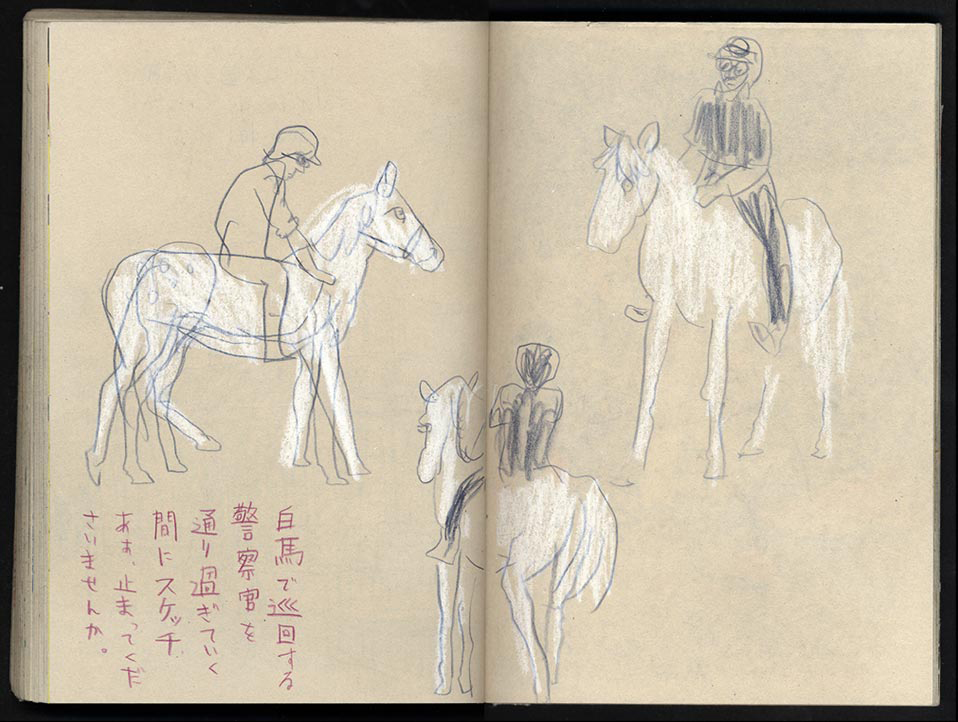 白馬で巡回する
警察官を
通り過ぎていく
間にスケッチ
ああ、止まってくだ
さいませんか。